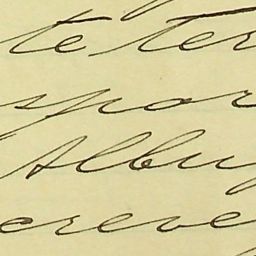 te ter
spor
Albu
creve